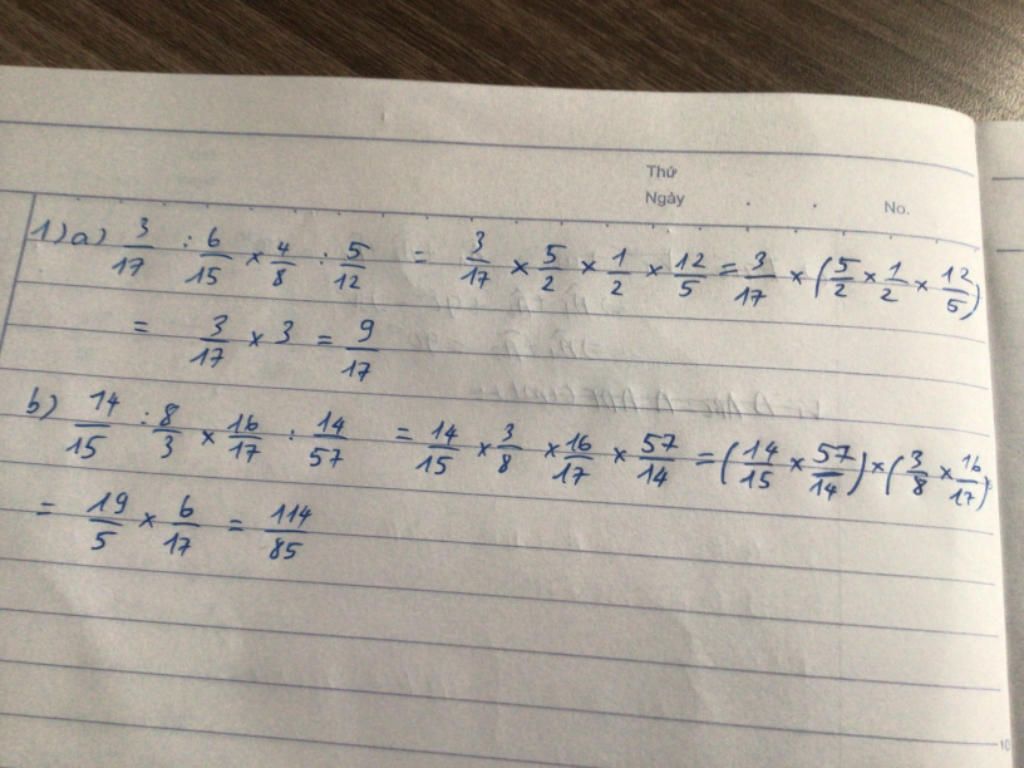 Thứ
Ngày
No.
1) a) 3/17 : 6/15 × 4/8 : 5/12 = 3/17 × 5/2 × 1/2 × 12/5 = 3/17 × (5/2 × 1/2 × 12/5)
= 3/17 × 3 = 9/17
b) 14/15 : 8/3 × 16/17 : 14/57 = 14/15 × 3/8 × 16/17 × 57/14 = (14/15 × 57/14) × (3/8 × 16/17)
= 19/5 × 6/17 = 114/85
10